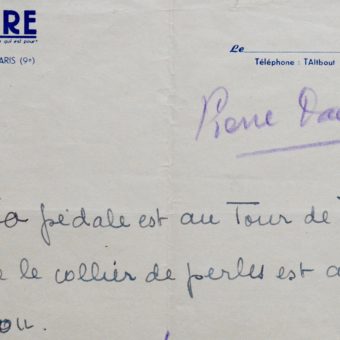 RE
qui est pour"
ARIS (9e)
Le
Téléphone : TAItbout
Pierre Dac
a pédale est au Tour de
e le collier de perles est a
ou.